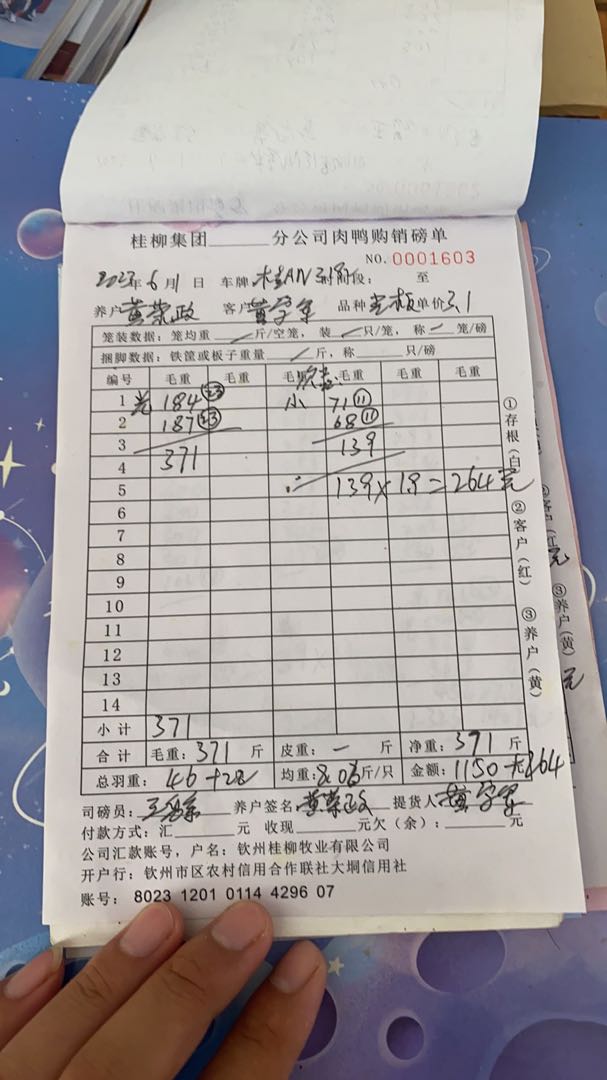 桂柳集团______分公司肉鸭购销磅单
NO. 0001603
2023年6月1日 车牌 时阶段: 至
养户 黄荣政 客户 黄字 品种 光板 单价 3.1
笼装数据: 笼均重 / 斤/空笼, 装 / 只/笼, 称 笼/磅
捆脚数据: 铁篦或板子重量 / 斤, 称 只/磅
编号 毛重 毛重 毛重 毛重 毛重 毛重
1 光 184 23 小 71 11
2 187 23 68 11
3 139
4 371
5 ∴ 139×1.9=264元
6
7
8
9
10
11
12
13
14
小计 371
合计 毛重: 371 斤 皮重: 一 斤 净重: 371 斤
总羽重: 46+22 均重: 8.06 斤/只 金额: 1150+264
司磅员: 养户签名: 黄荣政 提货人: 黄字
付款方式: 汇______元 收现______元欠(余): ______元
公司汇款账号, 户名: 钦州桂柳牧业有限公司
开户行: 钦州市区农村信用合作联社大垌信用社
账号: 8023 1201 0114 4296 07
①存根(白) ②客户(红) ③养户(黄)
③养户(黄)